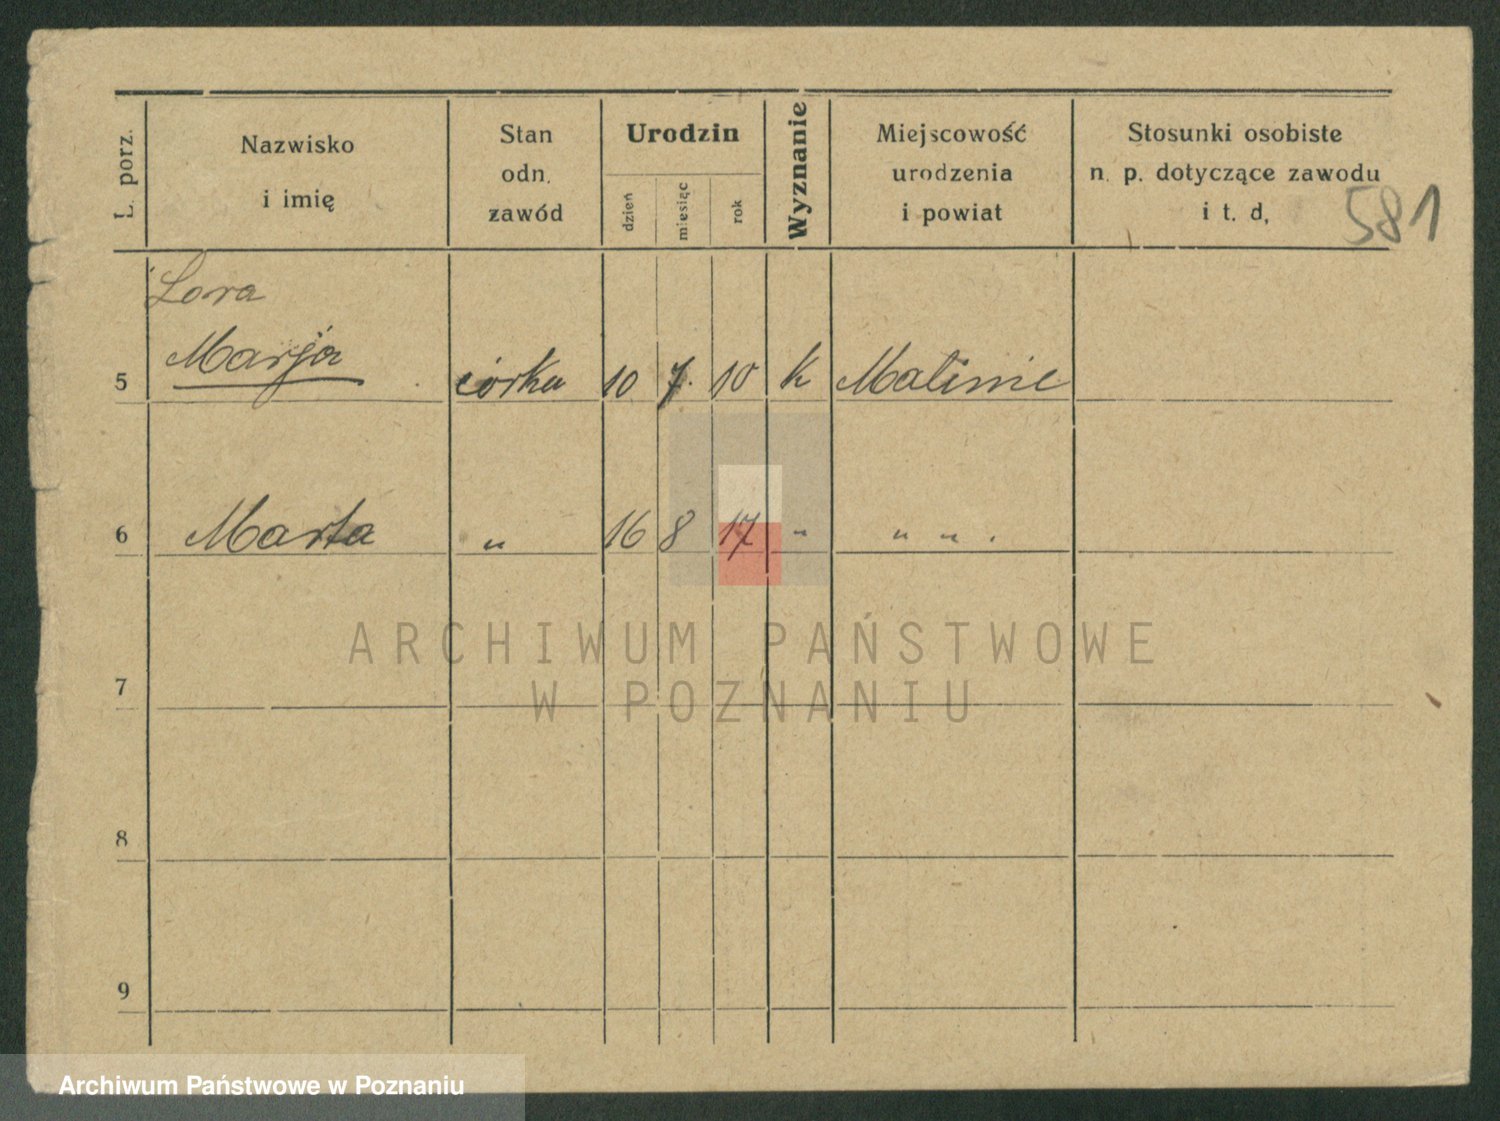 L. porz.
Nazwisko
i imię
Stan
odn.
zawód
Urodzin
dzień
miesiąc
rok
Wyznanie
Miejscowość
urodzenia
i powiat
Stosunki osobiste
n. p. dotyczące zawodu
i t. d,
581
Lora
5 Marja córka 10 7. 10 k Malinie
6 Marta " 16 8 17 " " " .
ARCHIWUM PAŃSTWOWE
W POZNANIU
7
8
9
Archiwum Państwowe w Poznaniu